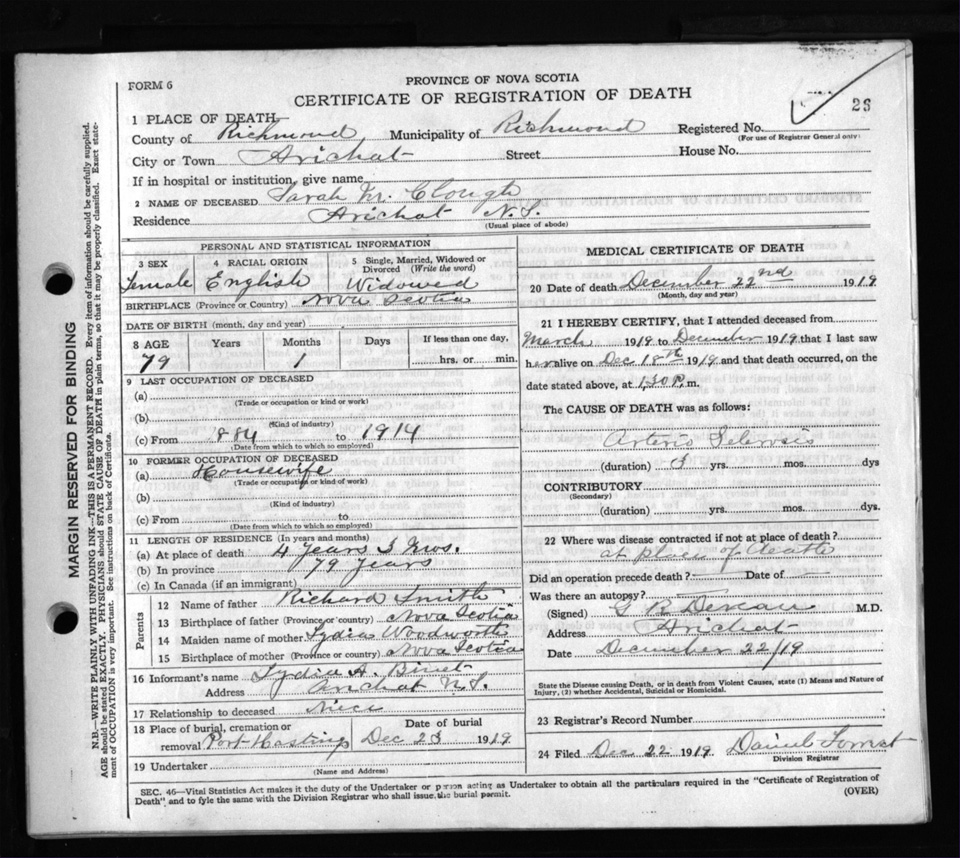 PROVINCE OF NOVA SCOTIA
FORM 6
CERTIFICATE OF REGISTRATION OF DEATH
26
1 PLACE OF DEATH
County of Richmond Municipality of Richmond Registered No.
(For use of Registrar General only)
City or Town Arichat Street House No.
If in hospital or institution, give name
2 NAME OF DECEASED Sarah M. Clough
Residence Arichat N.S.
(Usual place of abode)
PERSONAL AND STATISTICAL INFORMATION
3 SEX 4 RACIAL ORIGIN 5 Single, Married, Widowed or Divorced (Write the word)
Female English Widowed
BIRTHPLACE (Province or Country) Nova Scotia
DATE OF BIRTH (month, day and year)
8 AGE Years Months Days If less than one day,
79 1 hrs. or min.
9 LAST OCCUPATION OF DECEASED
(a)
(Trade or occupation or kind of work)
(b)
(Kind of industry)
(c) From 1884 to 1914
(Date from which to which so employed)
10 FORMER OCCUPATION OF DECEASED
(a) Housewife
(Trade or occupation or kind of work)
(b)
(Kind of industry)
(c) From to
(Date from which to which so employed)
11 LENGTH OF RESIDENCE (In years and months)
(a) At place of death 4 years 3 Mos.
(b) In province 79 years
(c) In Canada (if an immigrant)
Parents
12 Name of father Richard Smith
13 Birthplace of father (Province or country) Nova Scotia
14 Maiden name of mother Lydia Woodworth
15 Birthplace of mother (Province or country) Nova Scotia
16 Informant's name Lydia A. Binet
Address Arichat N.S.
17 Relationship to deceased Niece
18 Place of burial, cremation or removal Port Hastings Date of burial Dec 23 1919
19 Undertaker
(Name and Address)
MEDICAL CERTIFICATE OF DEATH
20 Date of death December 22nd 1919
(Month, day and year)
21 I HEREBY CERTIFY, that I attended deceased from
March 1919 to December 1919 that I last saw
her alive on Dec 18th 1919 and that death occurred, on the
date stated above, at 1.30 P. m.
The CAUSE OF DEATH was as follows:
Arterio Sclerosis
(duration) 3 yrs. mos. dys
CONTRIBUTORY
(Secondary)
(duration) yrs. mos. dys.
22 Where was disease contracted if not at place of death?
at place of death
Did an operation precede death? Date of
Was there an autopsy?
(Signed) M.D.
Address Arichat
Date December 22/19
State the Disease causing Death, or in death from Violent Causes, state (1) Means and Nature of Injury, (2) whether Accidental, Suicidal or Homicidal.
23 Registrar's Record Number
24 Filed Dec 22 1919 Daniel
Division Registrar
SEC. 46—Vital Statistics Act makes it the duty of the Undertaker or person acting as Undertaker to obtain all the particulars required in the "Certificate of Registration of
Death" and to fyle the same with the Division Registrar who shall issue the burial permit.
(OVER)
MARGIN RESERVED FOR BINDING
N.B.—WRITE PLAINLY WITH UNFADING INK—THIS IS A PERMANENT RECORD. Every item of information should be carefully supplied.
AGE should be stated EXACTLY. PHYSICIANS should STATE CAUSE OF DEATH in plain terms, so that it may be properly classified. Exact state-
ment of OCCUPATION is very important. See instructions on back of Certificate.